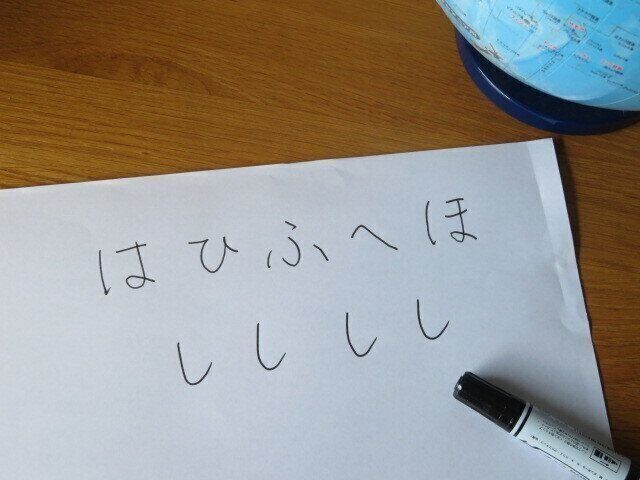 はひふへほ
しししし